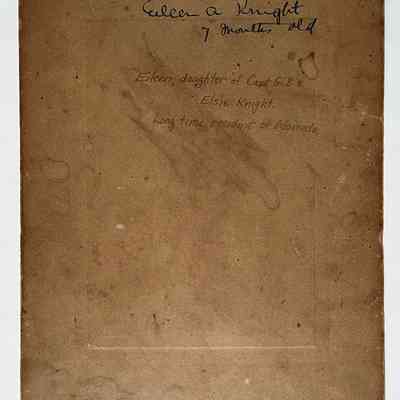 Eileen A Knight
7 months old
Eileen, daughter of Capt G.E &
Elsie Knight.
Long time resident of Alameda,